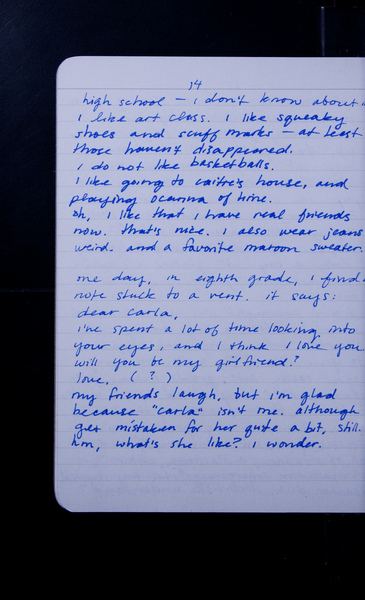 14
high school — i don't know about
i like art class. i like squeaky
shoes and scuff marks — at least
those haven't disappeared.
i do not like basketballs.
i like going to caitie's house, and
playing ocarina of time.
oh, i like that i have real friends
now. that's nice. i also wear jeans
weird. and a favorite maroon sweater.
one day, in eighth grade, i find
note stuck to a vent. it says:
dear carla,
i've spent a lot of time looking into
your eyes, and i think i love you
will you be my girlfriend?
love, (?)
my friends laugh, but i'm glad
because "carla" isn't me. although
get mistaken for her quite a bit, still.
hm, what's she like? i wonder.